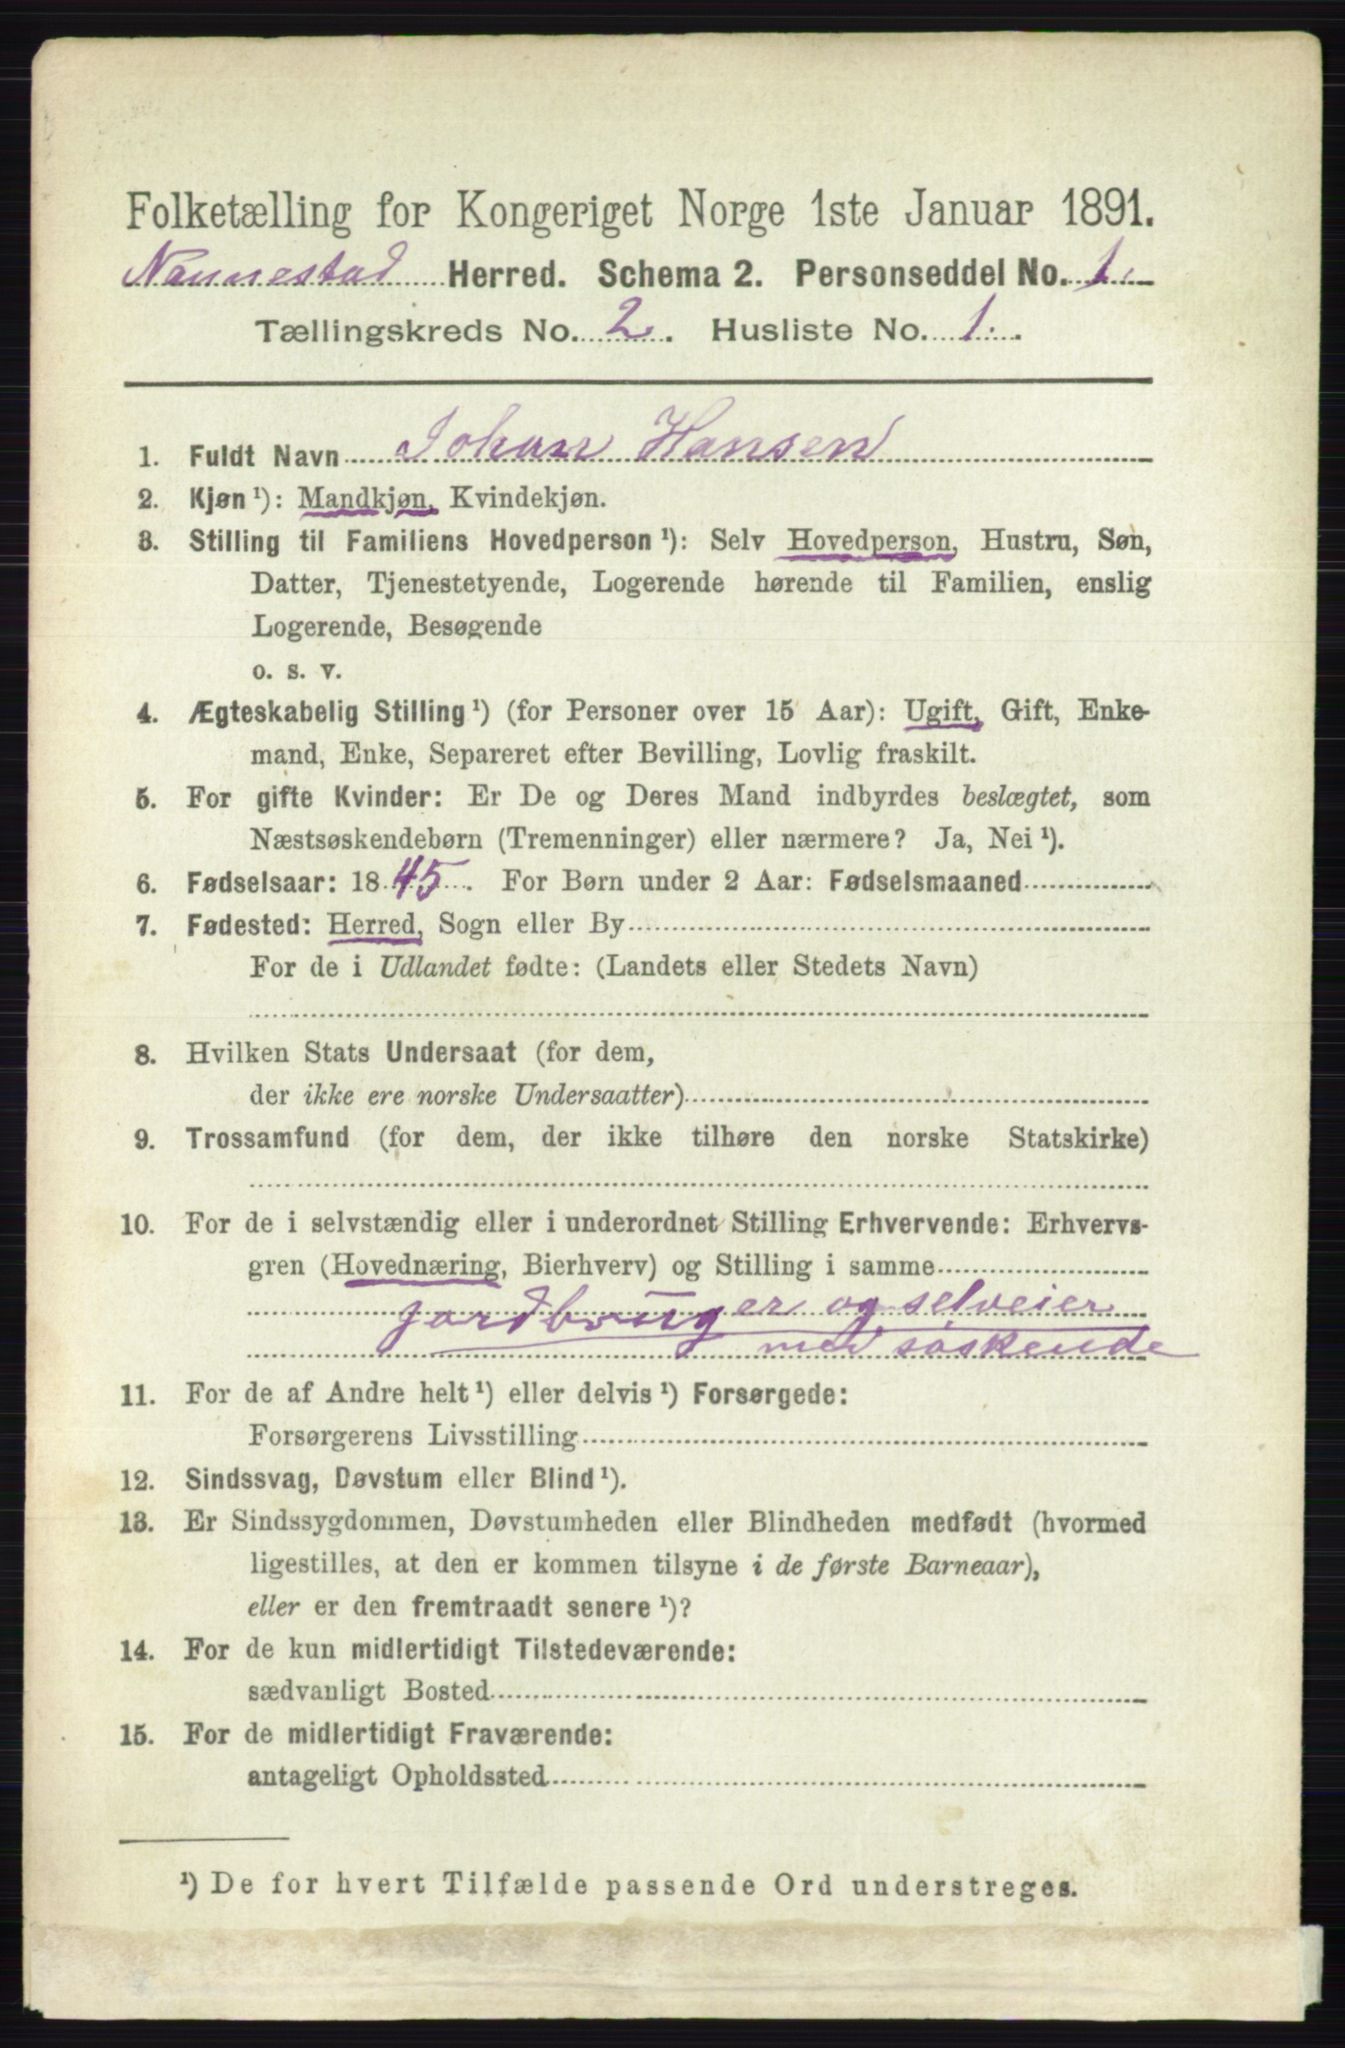 Folketælling for Kongeriget Norge 1ste Januar 1891.
Nannestad Herred. Schema 2. Personseddel No. 1.
Tællingskreds No. 2. Husliste No. 1.
1. Fuldt Navn Johan Hansen
2. Kjøn ¹): Mandkjøn, Kvindekjøn.
3. Stilling til Familiens Hovedperson ¹): Selv Hovedperson, Hustru, Søn,
Datter, Tjenestetyende, Logerende hørende til Familien, enslig
Logerende, Besøgende
o. s. v.
4. Ægteskabelig Stilling ¹) (for Personer over 15 Aar): Ugift, Gift, Enke-
mand, Enke, Separeret efter Bevilling, Lovlig fraskilt.
5. For gifte Kvinder: Er De og Deres Mand indbyrdes beslægtet, som
Næstsøskendebørn (Tremenninger) eller nærmere? Ja, Nei ¹).
6. Fødselsaar: 1845. For Børn under 2 Aar: Fødselsmaaned
7. Fødested: Herred, Sogn eller By
For de i Udlandet fødte: (Landets eller Stedets Navn)
8. Hvilken Stats Undersaat (for dem,
der ikke ere norske Undersaatter)
9. Trossamfund (for dem, der ikke tilhøre den norske Statskirke)
10. For de i selvstændig eller i underordnet Stilling Erhvervende: Erhvervs-
gren (Hovednæring, Bierhverv) og Stilling i samme
jordbruger og selveier
med søskende
11. For de af Andre helt ¹) eller delvis ¹) Forsørgede:
Forsørgerens Livsstilling
12. Sindssvag, Døvstum eller Blind ¹).
13. Er Sindssygdommen, Døvstumheden eller Blindheden medfødt (hvormed
ligestilles, at den er kommen tilsyne i de første Barneaar),
eller er den fremtraadt senere ¹)?
14. For de kun midlertidigt Tilstedeværende:
sædvanligt Bosted
15. For de midlertidigt Fraværende:
antageligt Opholdssted
¹) De for hvert Tilfælde passende Ord understreges.